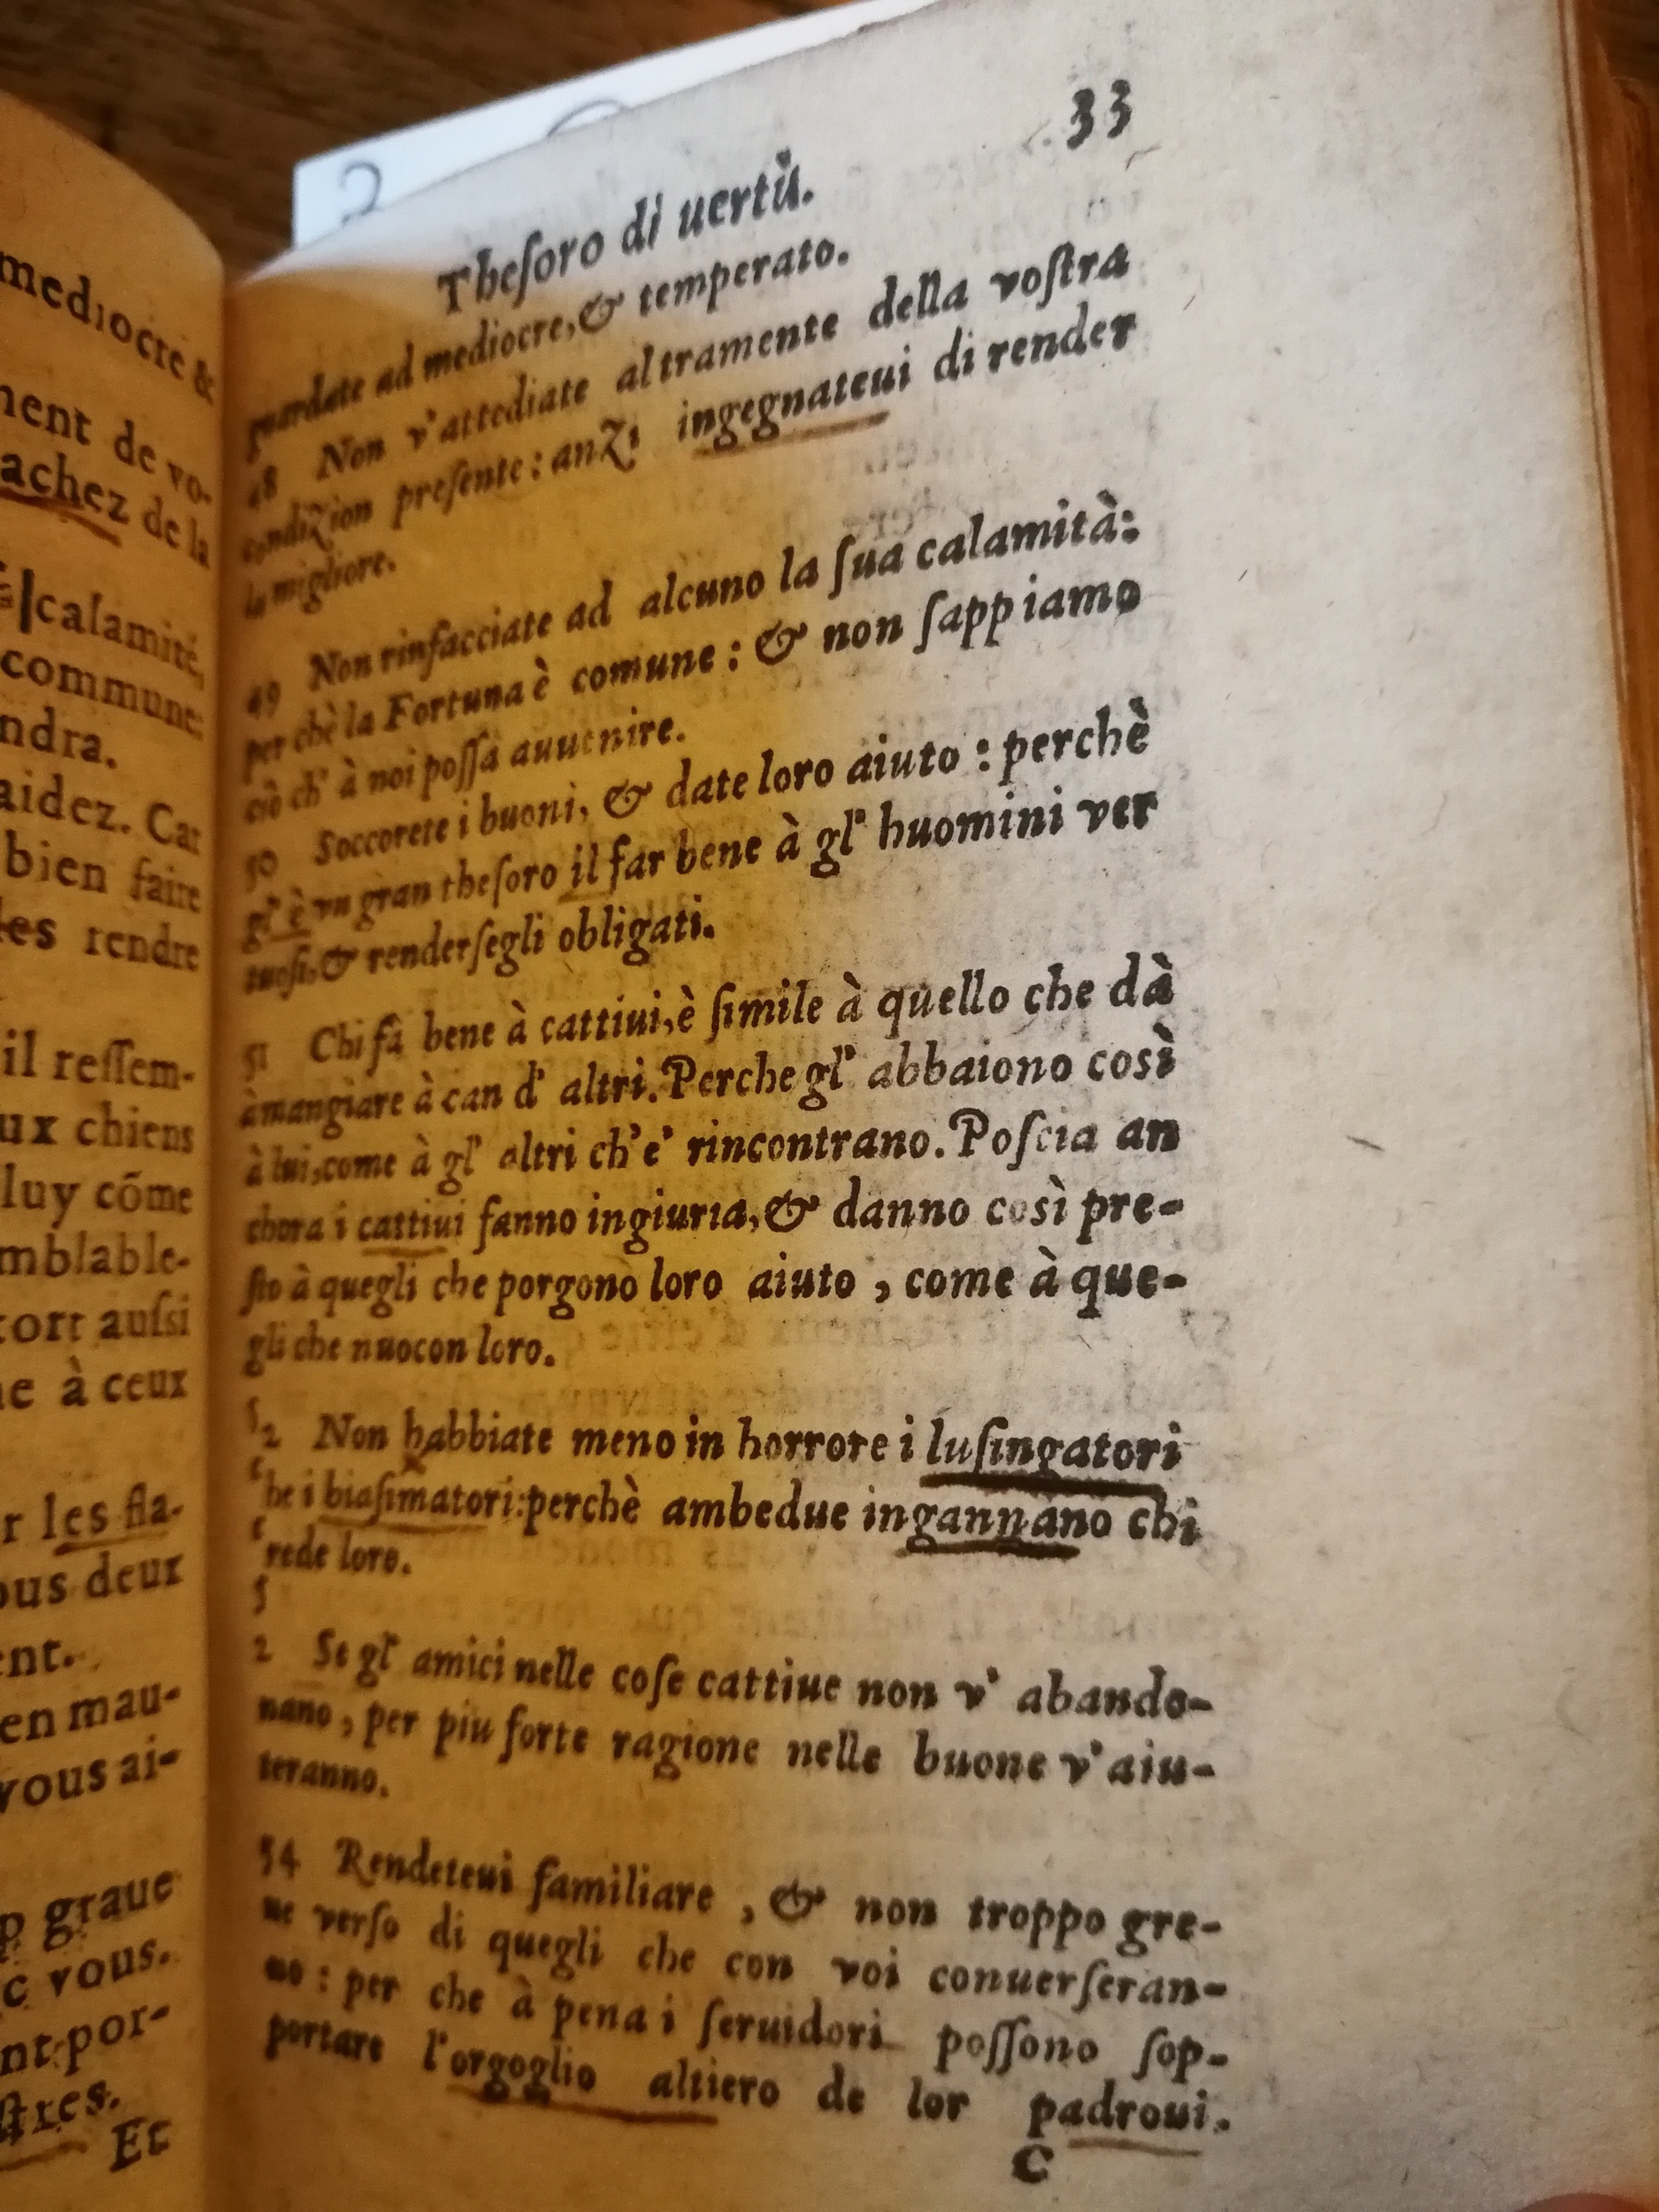 mediocre &
ment de vo-
achez de la
calamité,
commune:
ndra.
aidez. Car
bien faire
les rendre
il reſſem-
ux chiens
luy cõme
mblable-
tort auſsi
ne à ceux
r les fla-
ous deux
ent.
en mau-
vous ai-
p graue
c vous.
nt por-
ſtres.
Et
33
Theſoro di uertù.
guardate ad mediocre, & temperato.
48 Non v'attediate altramente della voſtra
condiZion preſente: anZi ingegnateui di render
la migliore.
49 Non rinfacciate ad alcuno la ſua calamità:
per chè la Fortuna è comune: & non ſappiamo
ciò ch' à noi poſſa auuenire.
50 Soccorete i buoni, & date loro aiuto: perchè
gl' è vn gran theſoro il far bene à gl' huomini ver
tuoſi, & renderſegli obligati.
51 Chi fà bene à cattiui, è ſimile à quello che dà
à mangiare à can d' altri. Perche gl' abbaiono così
à lui, come à gl' altri ch'e' rincontrano. Poſcia an
chora i cattiui fanno ingiuria, & danno così pre-
ſto à quegli che porgono loro aiuto, come à que-
gli che nuocon loro.
52 Non habbiate meno in horrore i luſingatori
che i biaſimatori: perchè ambedue ingannano chi
crede loro.
5
2 Se gl' amici nelle coſe cattiue non v' abando-
nano, per piu forte ragione nelle buone v'aiu-
teranno.
54 Rendeteui familiare, & non troppo gre-
ue verſo di quegli che con voi conuerſeran-
no: per che à pena i ſeruidori poſſono ſop-
portare l'orgoglio altiero de lor padroui.
C